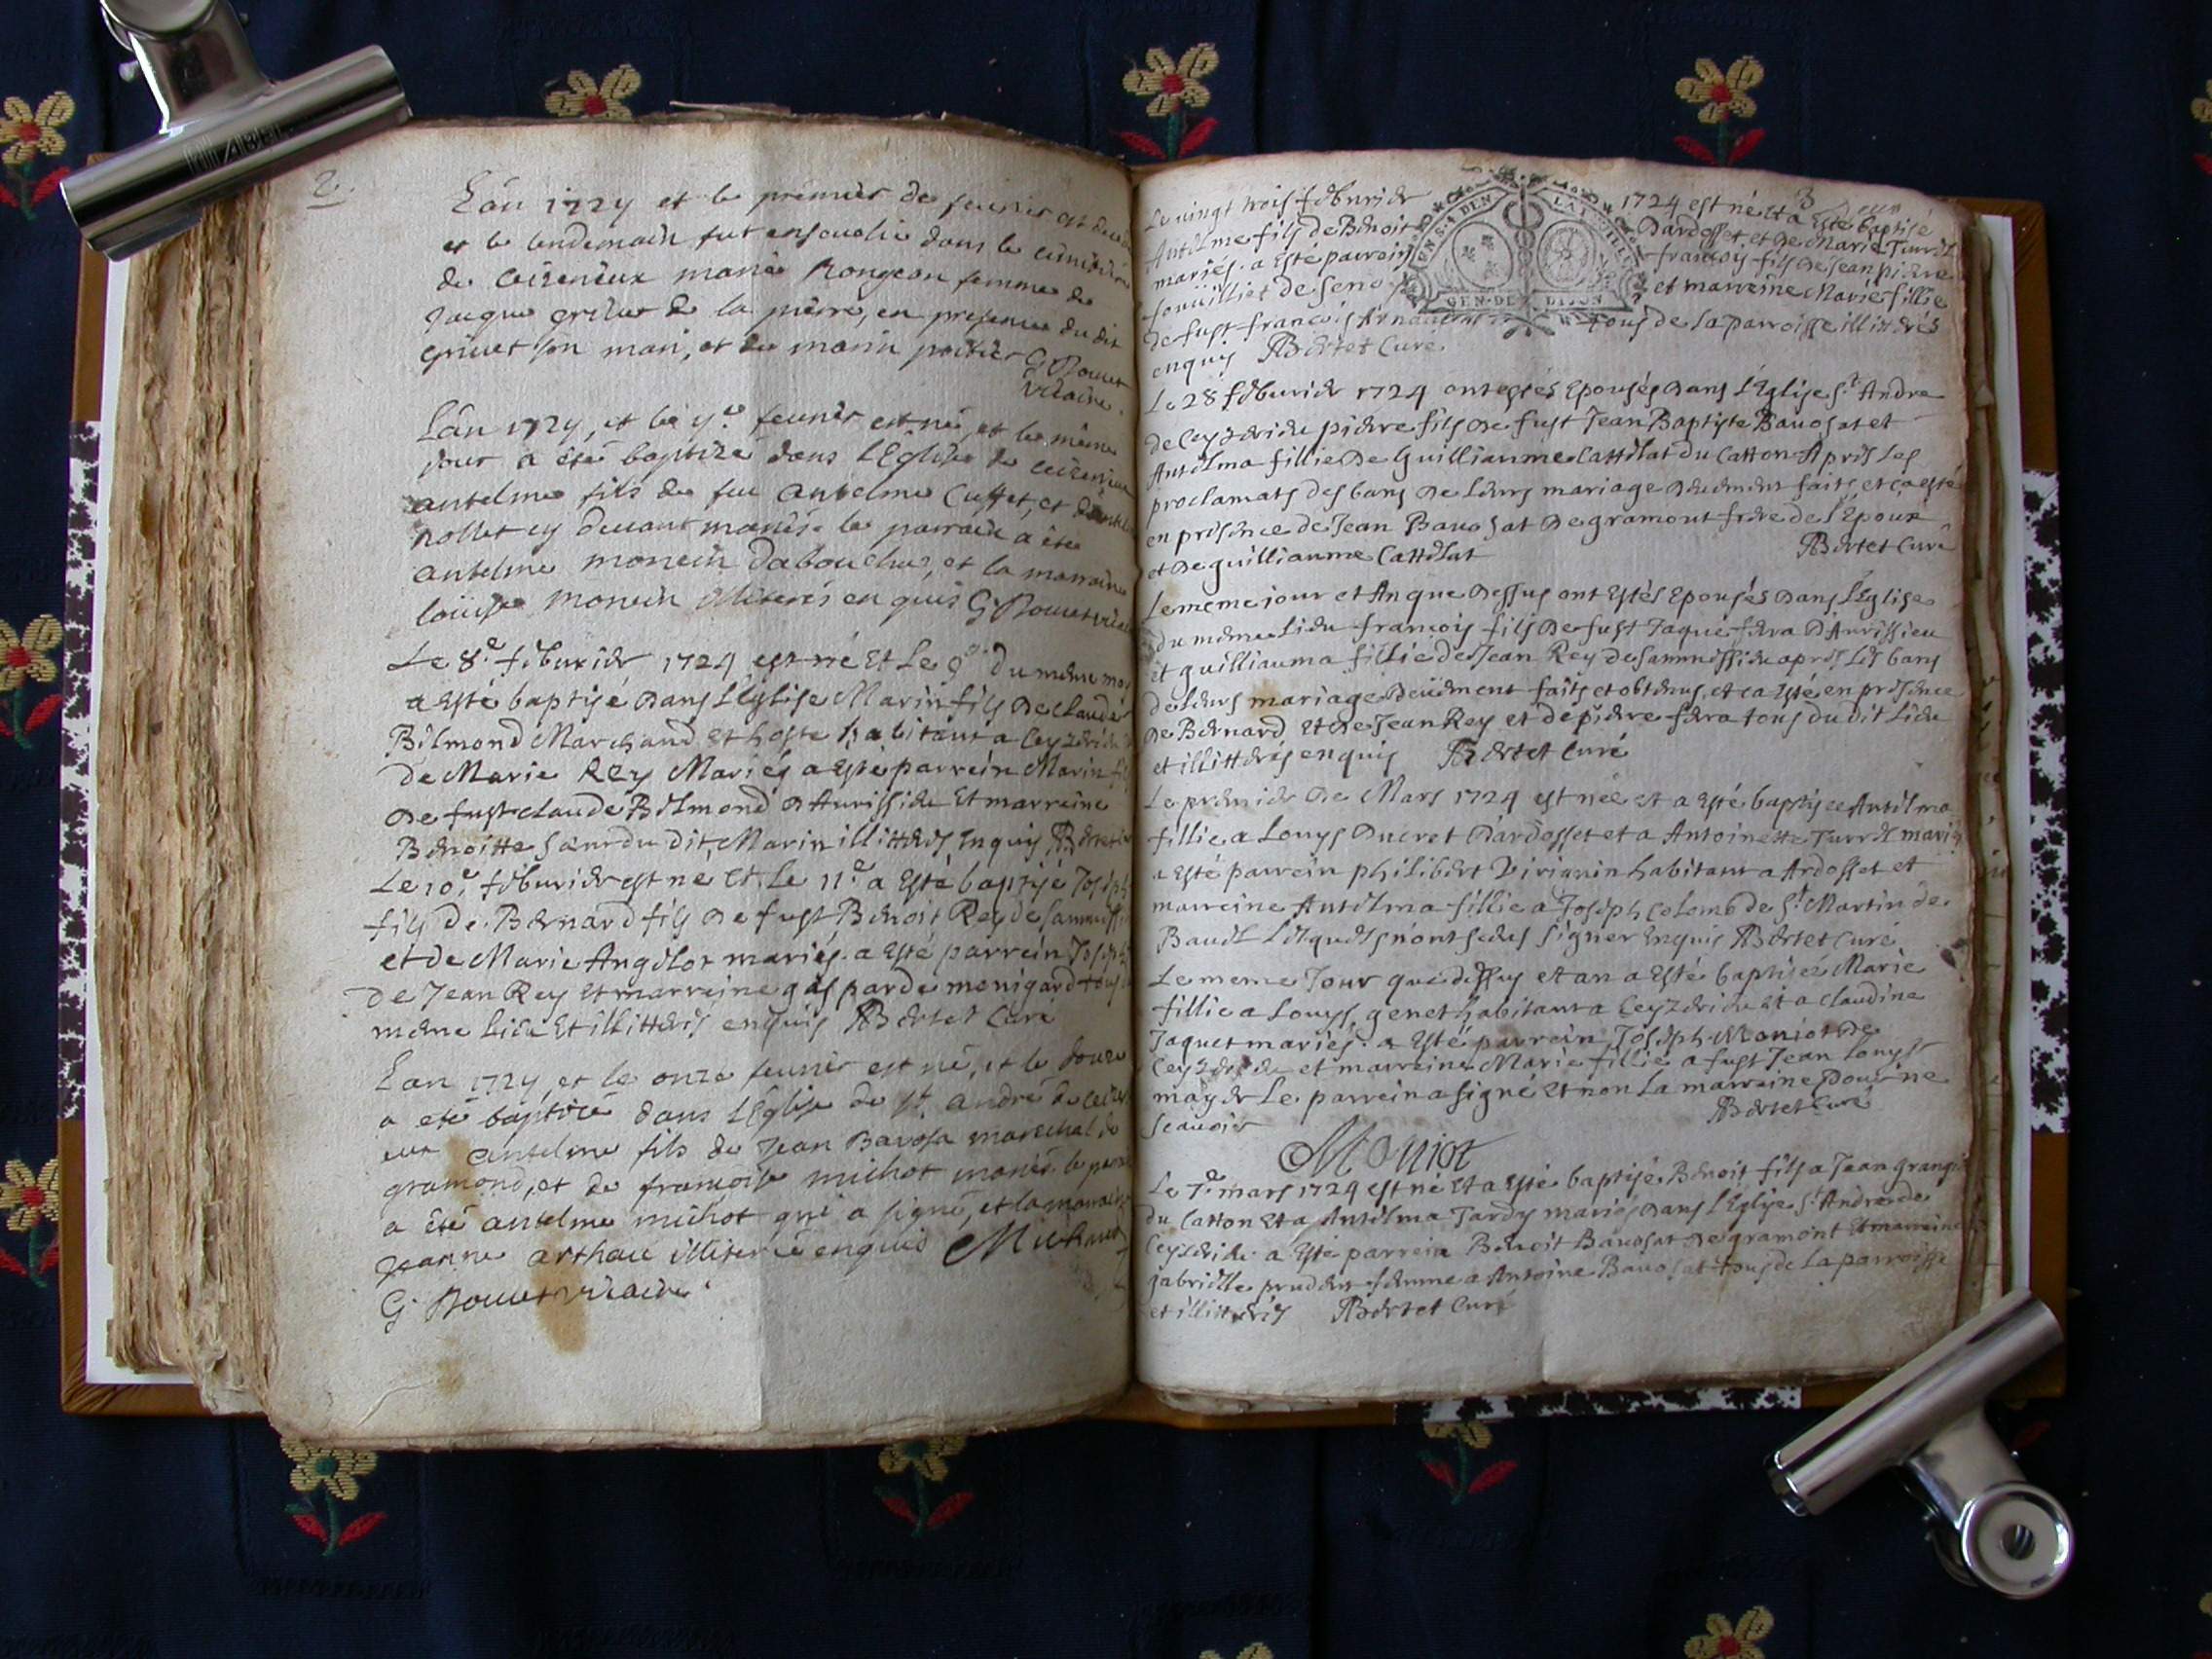 2.
L'an 1724 et le premier de feurier est
et le lendemain fut enseuelie dans le cimetiere
de ceizerieux marie Rongeon femme de
Jacque griuet de la pierre, en presence du dit
griuet son mari, et de marin poitier G. Rouuet
vicaire.
L'an 1724, et le 4e feurier est né, et le même
jour a été baptizé dans L'Eglise de ceizerieux
antelme fils de feu antelme Cusset, et
nollet cy deuant mariés. le parrain a été
antelme monein et la marraine
loüise monein illiterés enquis G. Rouuet
Le 8e feburier 1724 est né Et Le 9e du meme
a Esté baptisé Dans L'Eglise Marin fils De claude
Bilmond Marchand et hoste habitant a Ceyzerieu
de Marie Rey Mariés a esté parrein Marin
De fust claude Bilmond D'Aurissieu Et marreine
Benoitte Sœur du dit, Marin illitterés Enquis RBertet
Le 10e feburier est ne Et Le 11e a Esté baptisé Joseph
fils de Bernard fils De fust Benoit Rey de
et de Marie Angelot mariés. a Esté parrein Joseph
De Jean Rey Et marreine gasparde menigard tous
meme lieu Et illitterés enquis RBertet Curé
L'an 1724, et le onze feurier est né, et le douze
a eté baptizé dans L'Eglise de st. andré de ceizer
eux antelme fils de Jean Bavosa marechal de
gramond, et de françoise michot mariés. le
a été antelme michot qui a signé, et la marraine
Jeanne arthau illiterée enquis Michaut
G. Rouuet vicaire
3
Le vingt trois feburier 1724 est né Et a Esté baptisé
Antelme fils de Benoit Dardosset et De Marie Turrel
mariés. a Esté parrein françois fils De Jean pierre
fouilliet de et marreine Marie fillie
De fust francois tous de la parroisse illitterés
enquis RBertet Curé.
GEN. DE DIJON
Le 28 feburier 1724 ont estés Epousés Dans L'Eglise St Andre
de Ceyzerieu pierre fils De fust Jean Baptiste Bauosat et
Antelma fillie De Guilliaume Cattelat du Catton Apres Les
proclamats des bans De Leurs mariage Deuement faits et ca esté
en presence de Jean Bauosat De gramont frere de L'Epoux
et De guilliaume Cattelat RBertet Curé
Le meme iour et An que Dessus ont Estés Epousés Dans L'Eglise
du meme Lieu françois fils De fust Jaque fera D'Aurissieu
et guilliauma fillie de Jean Rey de sammissieu apres Les bans
de Leurs mariage Deüement faits et obtenus, et ca esté en presence
De Bernard Et De Jean Rey et de pierre fera tous du dit Lieu
et illitterés enquis RBertet Curé
Le premier De Mars 1724 est née et a Esté baptisee Antelma
fillie a Louys Ducret Dardosset et a Antoinette Turrel mariés
a Esté parrein philibert Vivianin habitant a Ardosset et
marreine Antelma fillie a Joseph Colomb de St Martin de
Bauel Lesquels n'ont sceus signer Enquis RBertet Curé
Le meme Jour que dessus et an a Esté baptisée Marie
fillie a Louys genet habitant a Ceyzerieu et a Claudine
Jaquet mariés. a Esté parrein Joseph Moniot de
Ceyzerieu et marreine Marie fillie a fust Jean Louys
mayer Le parrein a signé Et non La marreine pour ne
scauoir RBertet Curé
Moniot
Le 7e mars 1724 est né Et a Esté baptisé Benoit fils a Jean
du Catton Et a Antelma Tardy mariés Dans L'Eglise St Andre de
Ceyzerieu a Esté parrein Benoit Bauosat De gramont Et marreine
gabrielle prudent femme a Antoine Bauosat tous de La parroisse
et illitterés RBertet Curé